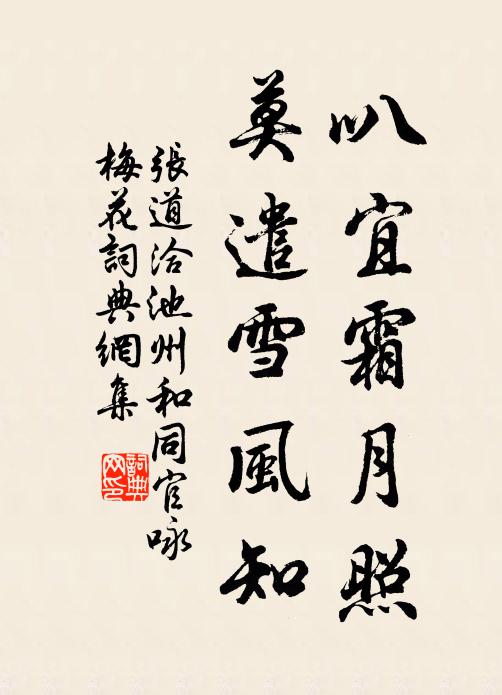 叭宜霜月照
莫遣雪風知
張道洽池州和同官咏
梅花詞典網集
詞典網印